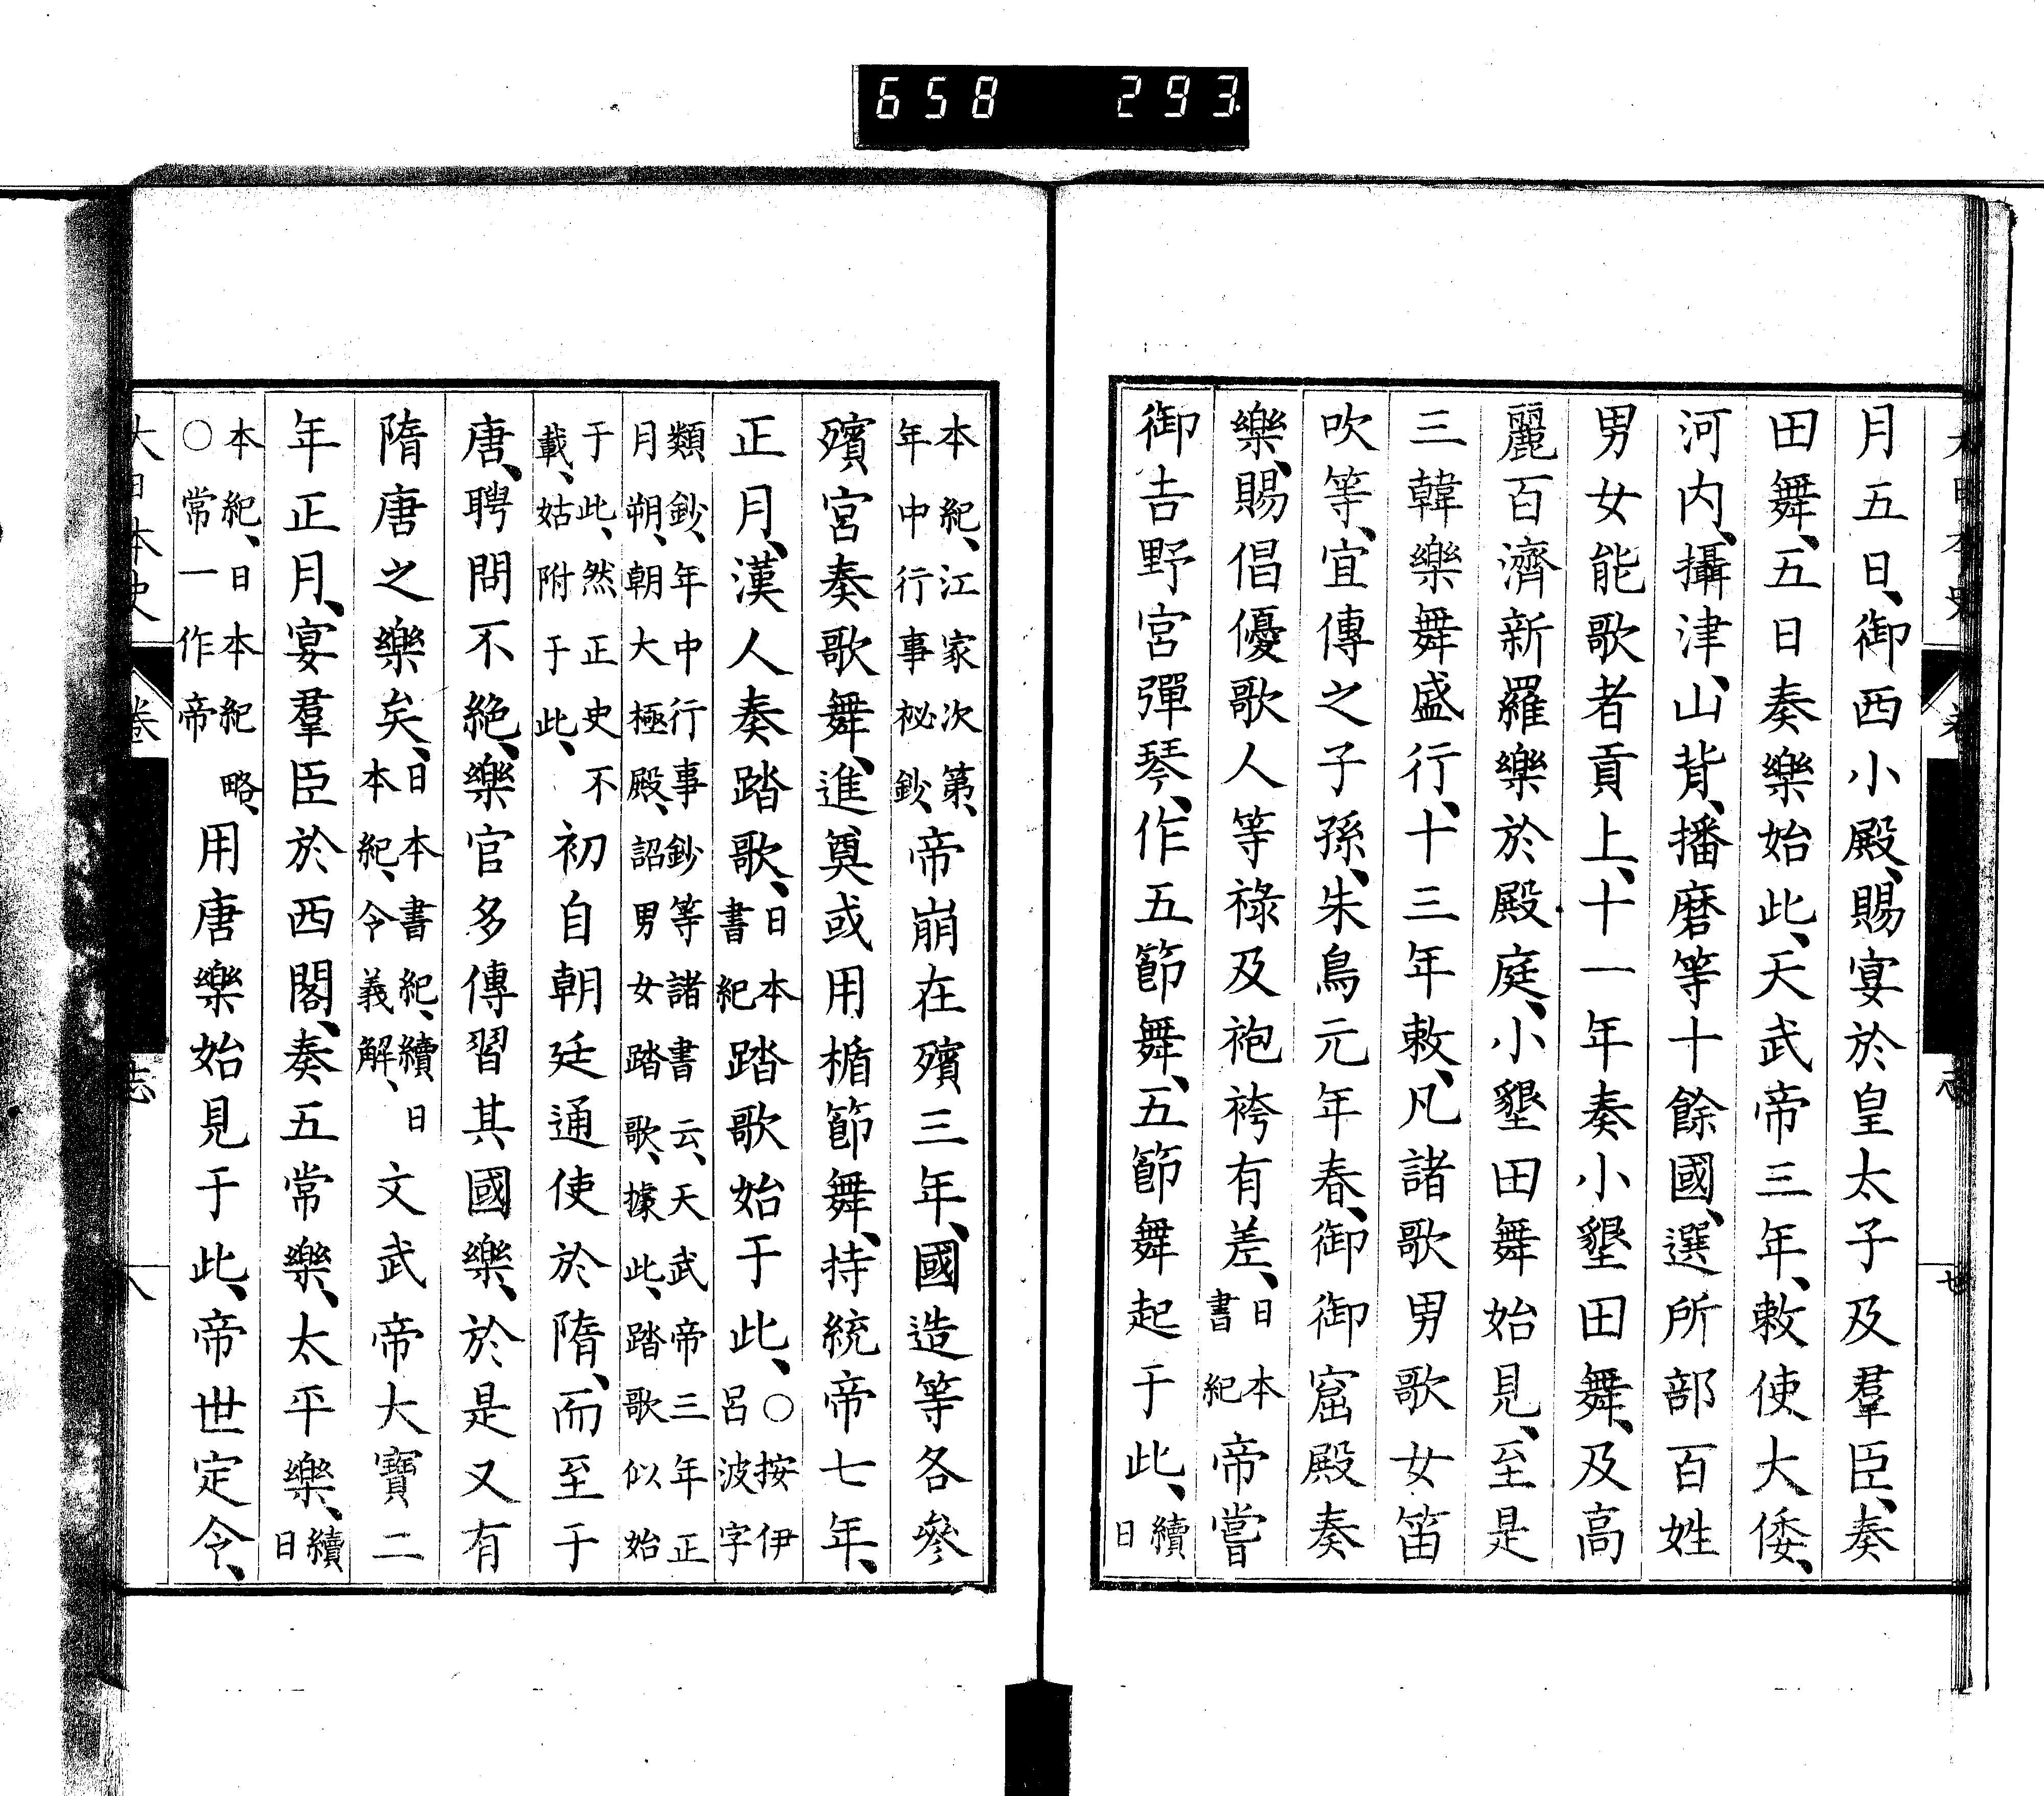 658 293
月五日、御西小殿、賜宴於皇太子及羣臣、奏
田舞、五日奏樂始此、天武帝三年、敕使大倭、
河内、攝津、山背、播磨等十餘國、選所部百姓
男女能歌者貢上、十一年奏小墾田舞、及高
麗百濟新羅樂於殿庭、小墾田舞始見、至是
三韓樂舞盛行、十三年敕、凡諸歌男歌女笛
吹等、宜傳之子孫、朱鳥元年春、御御窟殿奏
樂、賜倡優歌人等祿及袍袴有差、日本書紀帝嘗
御吉野宮彈琴、作五節舞、五節舞起于此、續日
本紀、江家次第、年中行事祕鈔、帝崩在殯三年、國造等各參
殯宮奏歌舞、進奠或用楯節舞、持統帝七年、
正月、漢人奏踏歌、日本書紀踏歌始于此、○按伊呂波字
類鈔、年中行事鈔等諸書云、天武帝三年正月朔、朝大極殿、詔男女踏歌、據此、踏歌似始
于此、然正史不載、姑附于此、初自朝廷通使於隋、而至于
唐、聘問不絶、樂官多傳習其國樂、於是又有
隋唐之樂矣、日本書紀、續日本紀、令義解、文武帝大寶二
年正月、宴羣臣於西閣、奏五常樂、太平樂、續日
本紀、日本紀略、○常一作帝用唐樂始見于此、帝世定令、
大日本史 卷 志 八